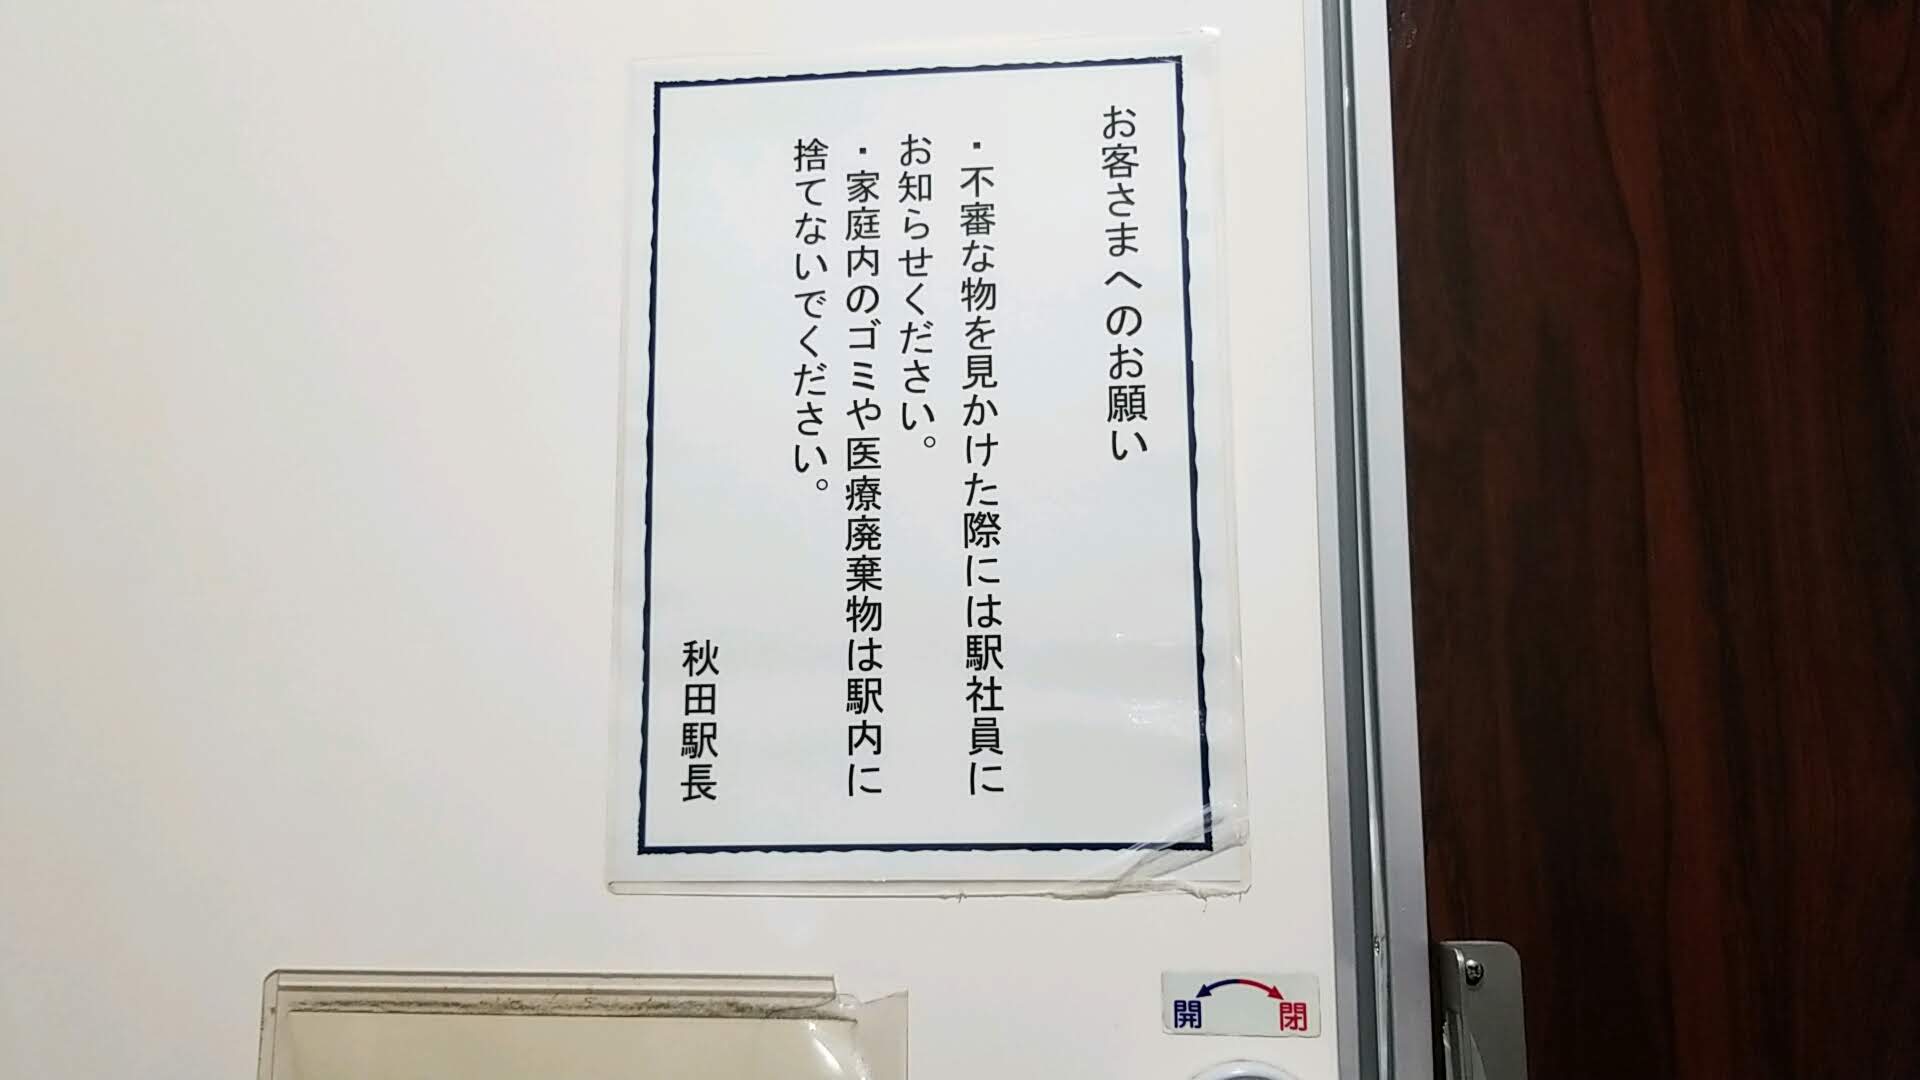 お客さまへのお願い
・不審な物を見かけた際には駅社員に
お知らせください。
・家庭内のゴミや医療廃棄物は駅内に
捨てないでください。
秋田駅長
開 閉